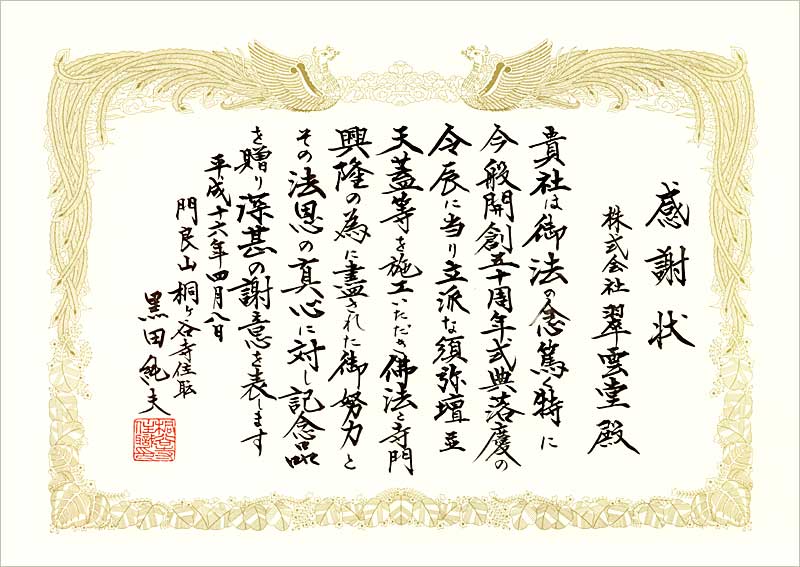 感謝状
株式会社 翠雲堂 殿
貴社は御法の念篤く特に
今般開創五十周年式典落慶の
令辰に当り立派な須弥壇並
天蓋等を施工いただき佛法と寺門
興隆の為に盡された御努力と
その法恩の真心に対し記念品
を贈り深甚の謝意を表します
平成十六年四月八日
門良山 桐ヶ谷寺住職
黒田純夫